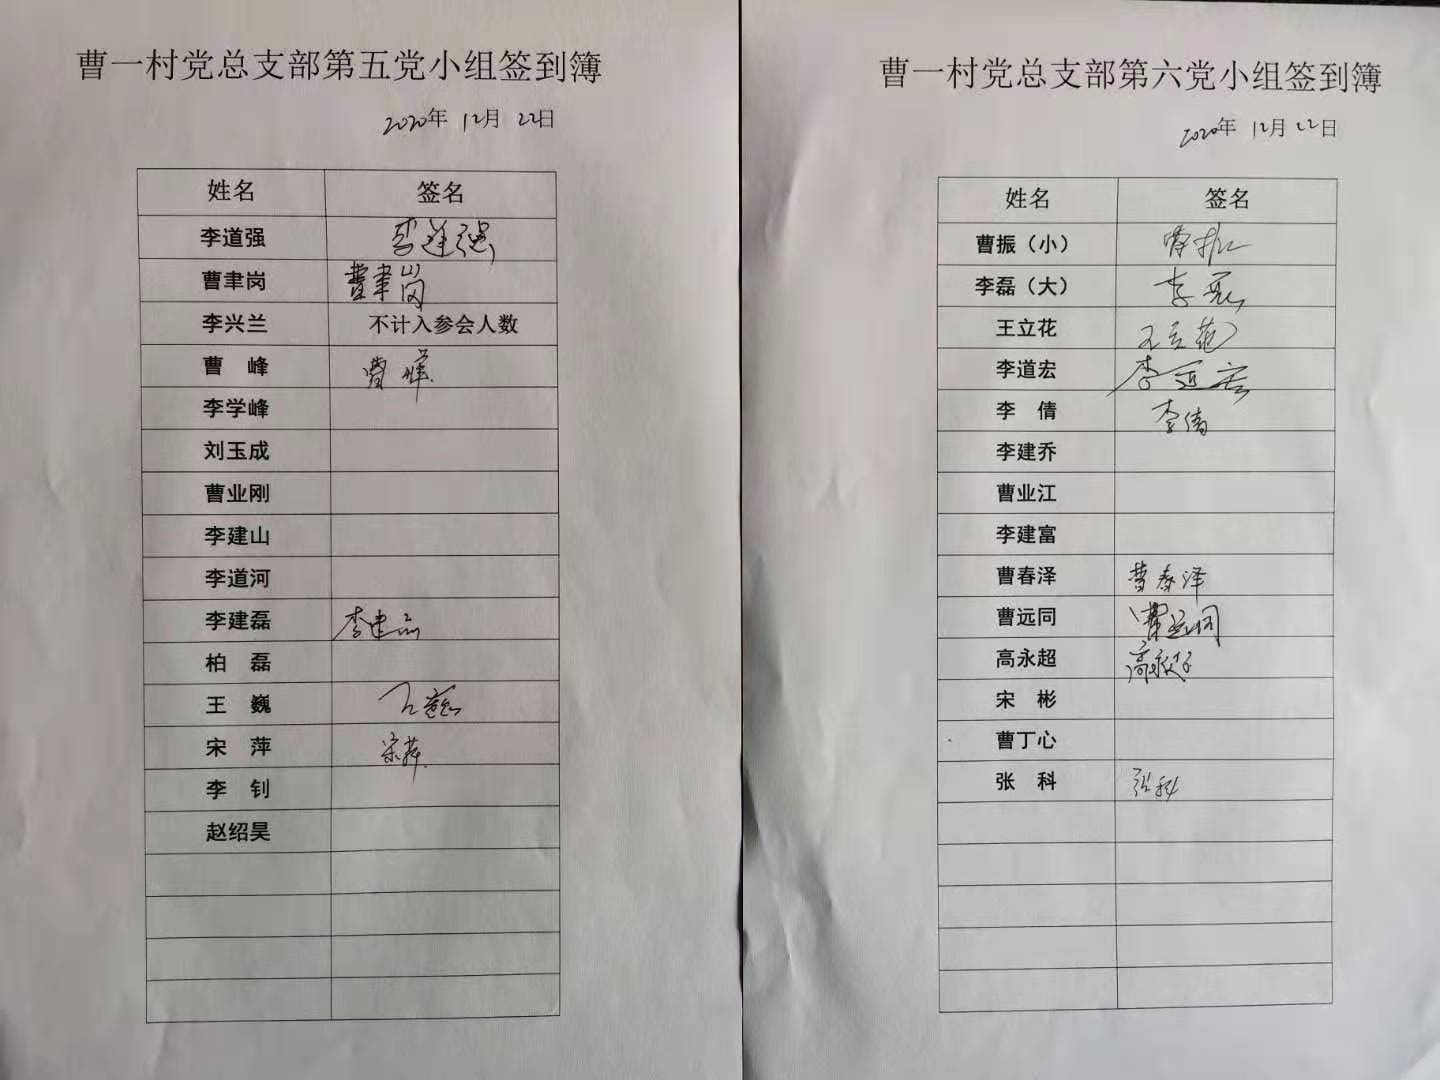 曹一村党总支部第五党小组签到簿
2020年 12月 22日
姓名 签名
李道强 李道强
曹聿岗 曹聿岗
李兴兰 不计入参会人数
曹 峰 曹峰
李学峰
刘玉成
曹业刚
李建山
李道河
李建磊 李建磊
柏 磊
王 巍 王巍
宋 萍 宋萍
李 钊
赵绍昊
曹一村党总支部第六党小组签到簿
2020年 12月 22日
姓名 签名
曹振（小） 曹振
李磊（大） 李磊
王立花 王立花
李道宏 李道宏
李 倩 李倩
李建乔
曹业江
李建富
曹春泽 曹春泽
曹远同 曹远同
高永超 高永超
宋 彬
曹丁心
张 科 张科